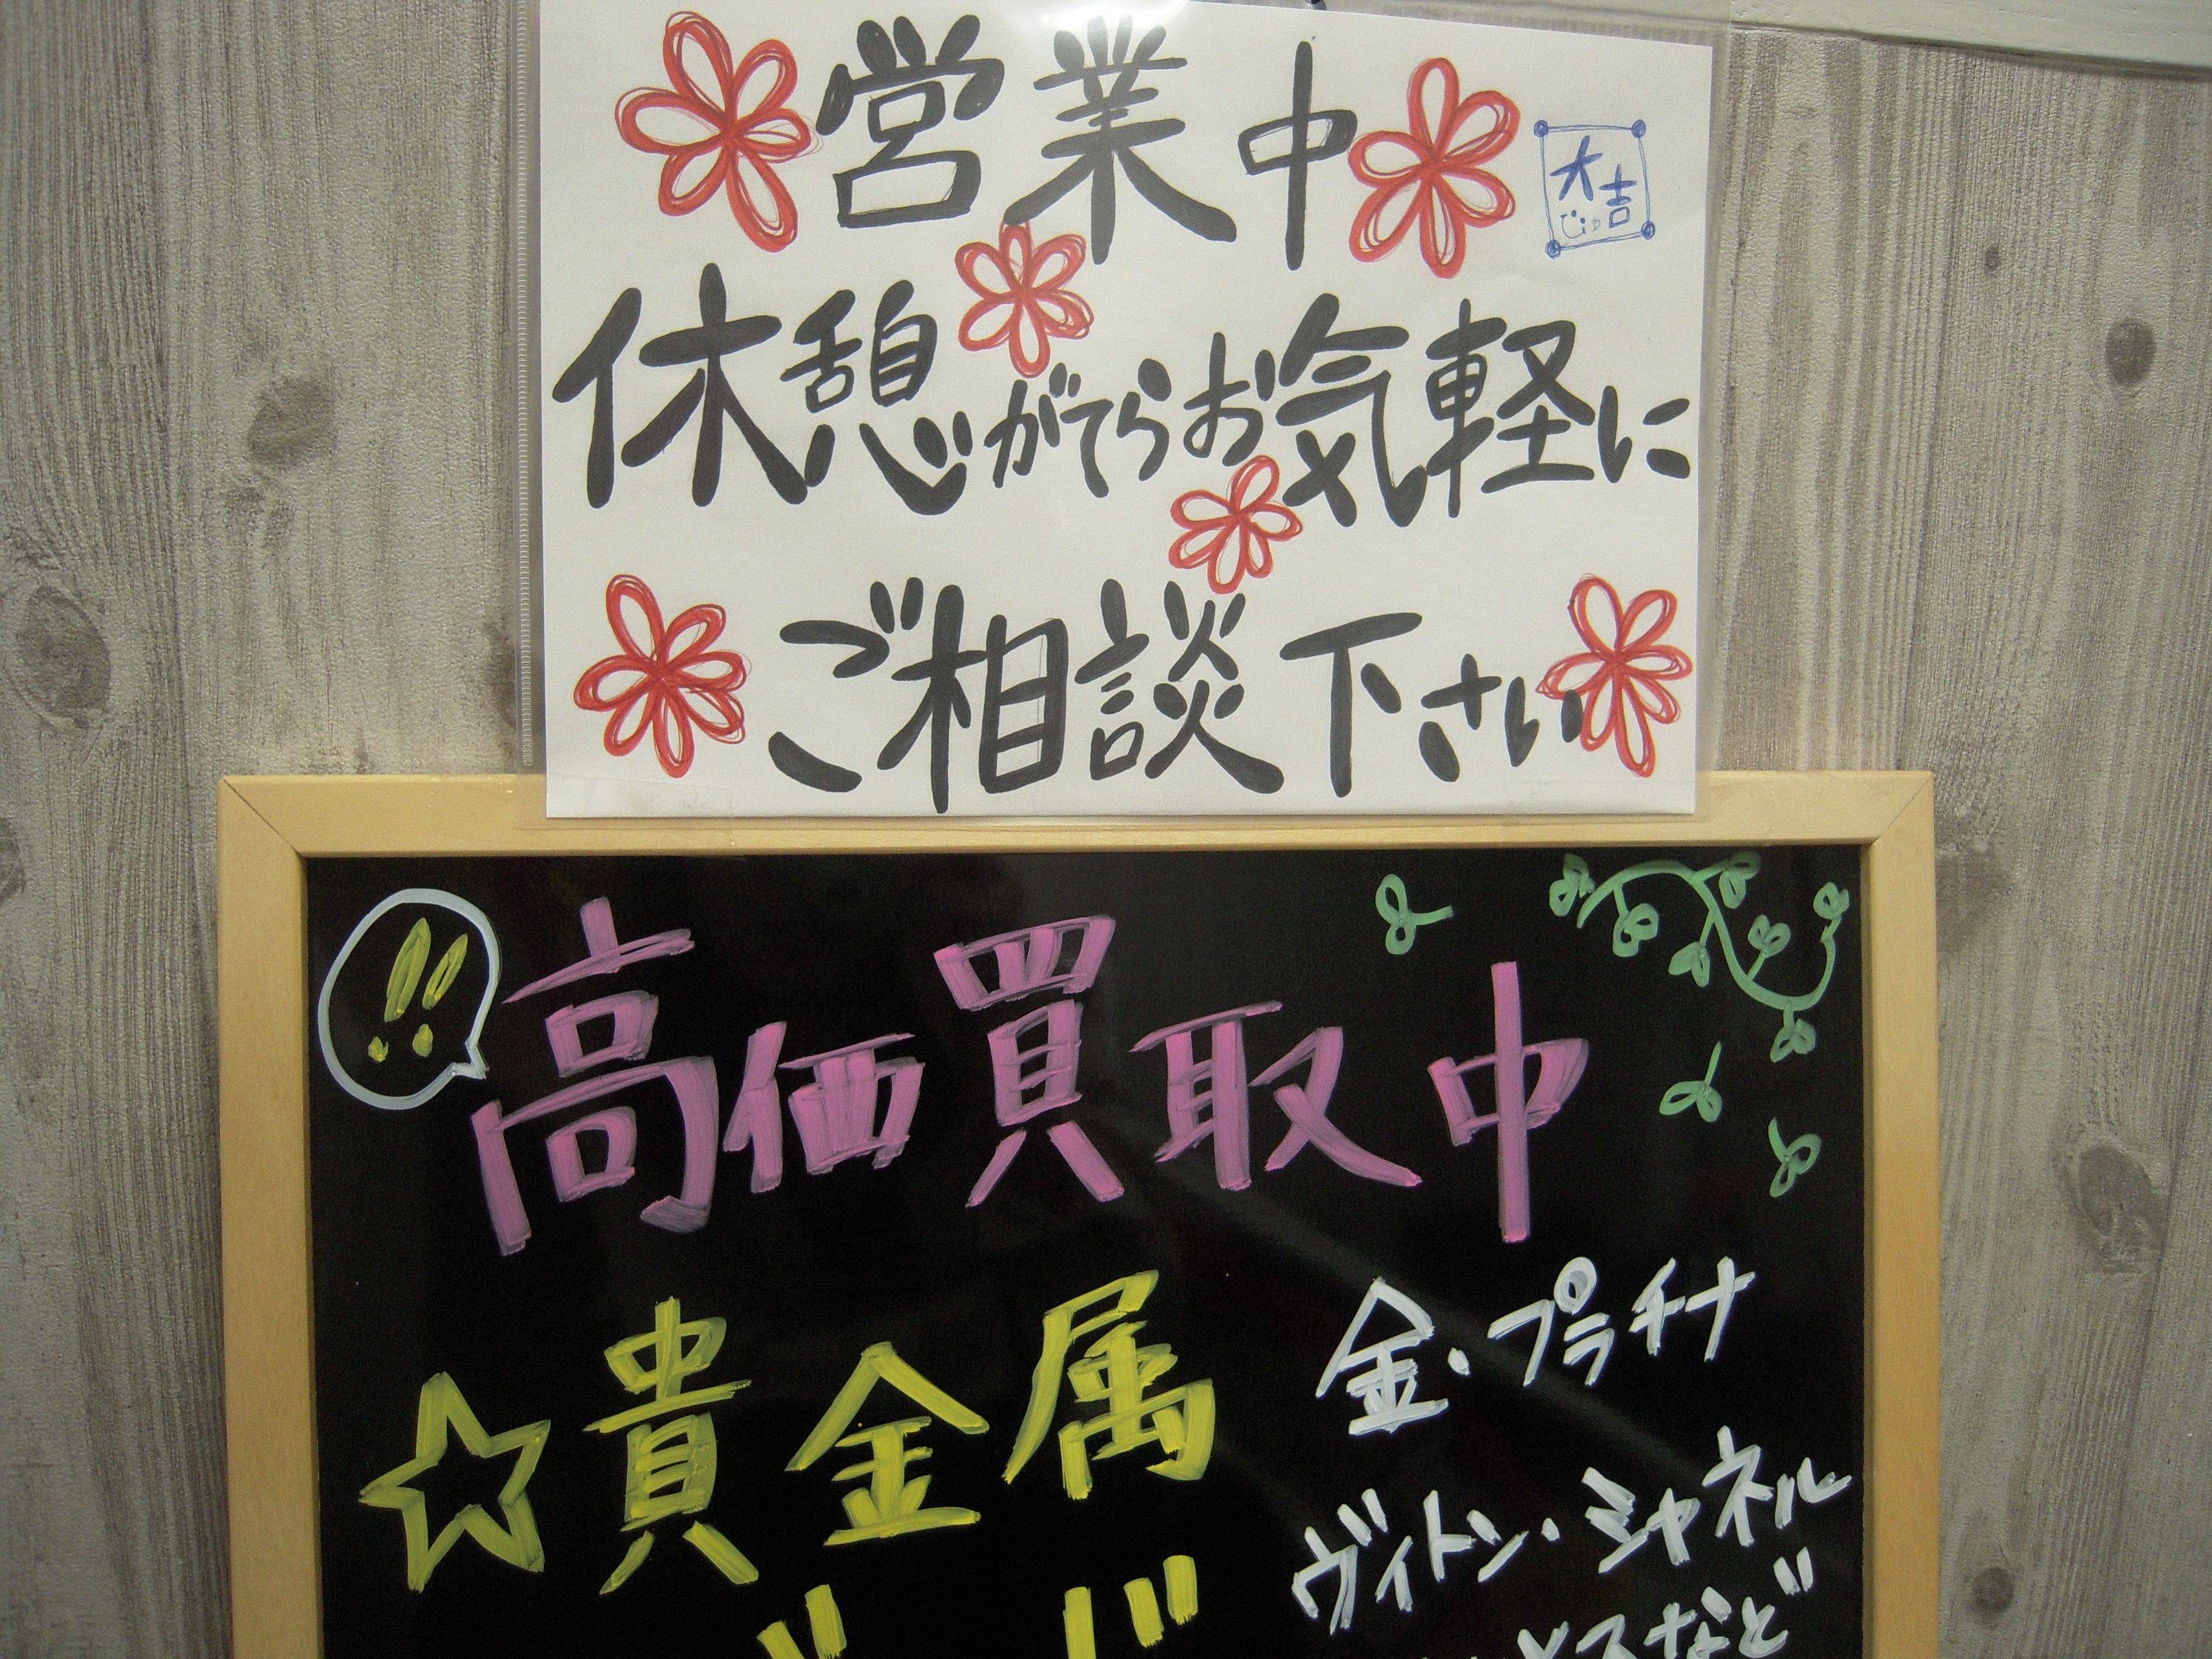 営業中
大吉
休憩がてらお気軽に
ご相談下さい
!!
高価買取中
☆貴金属
金・プラチナ
ヴィトン・シャネル
など